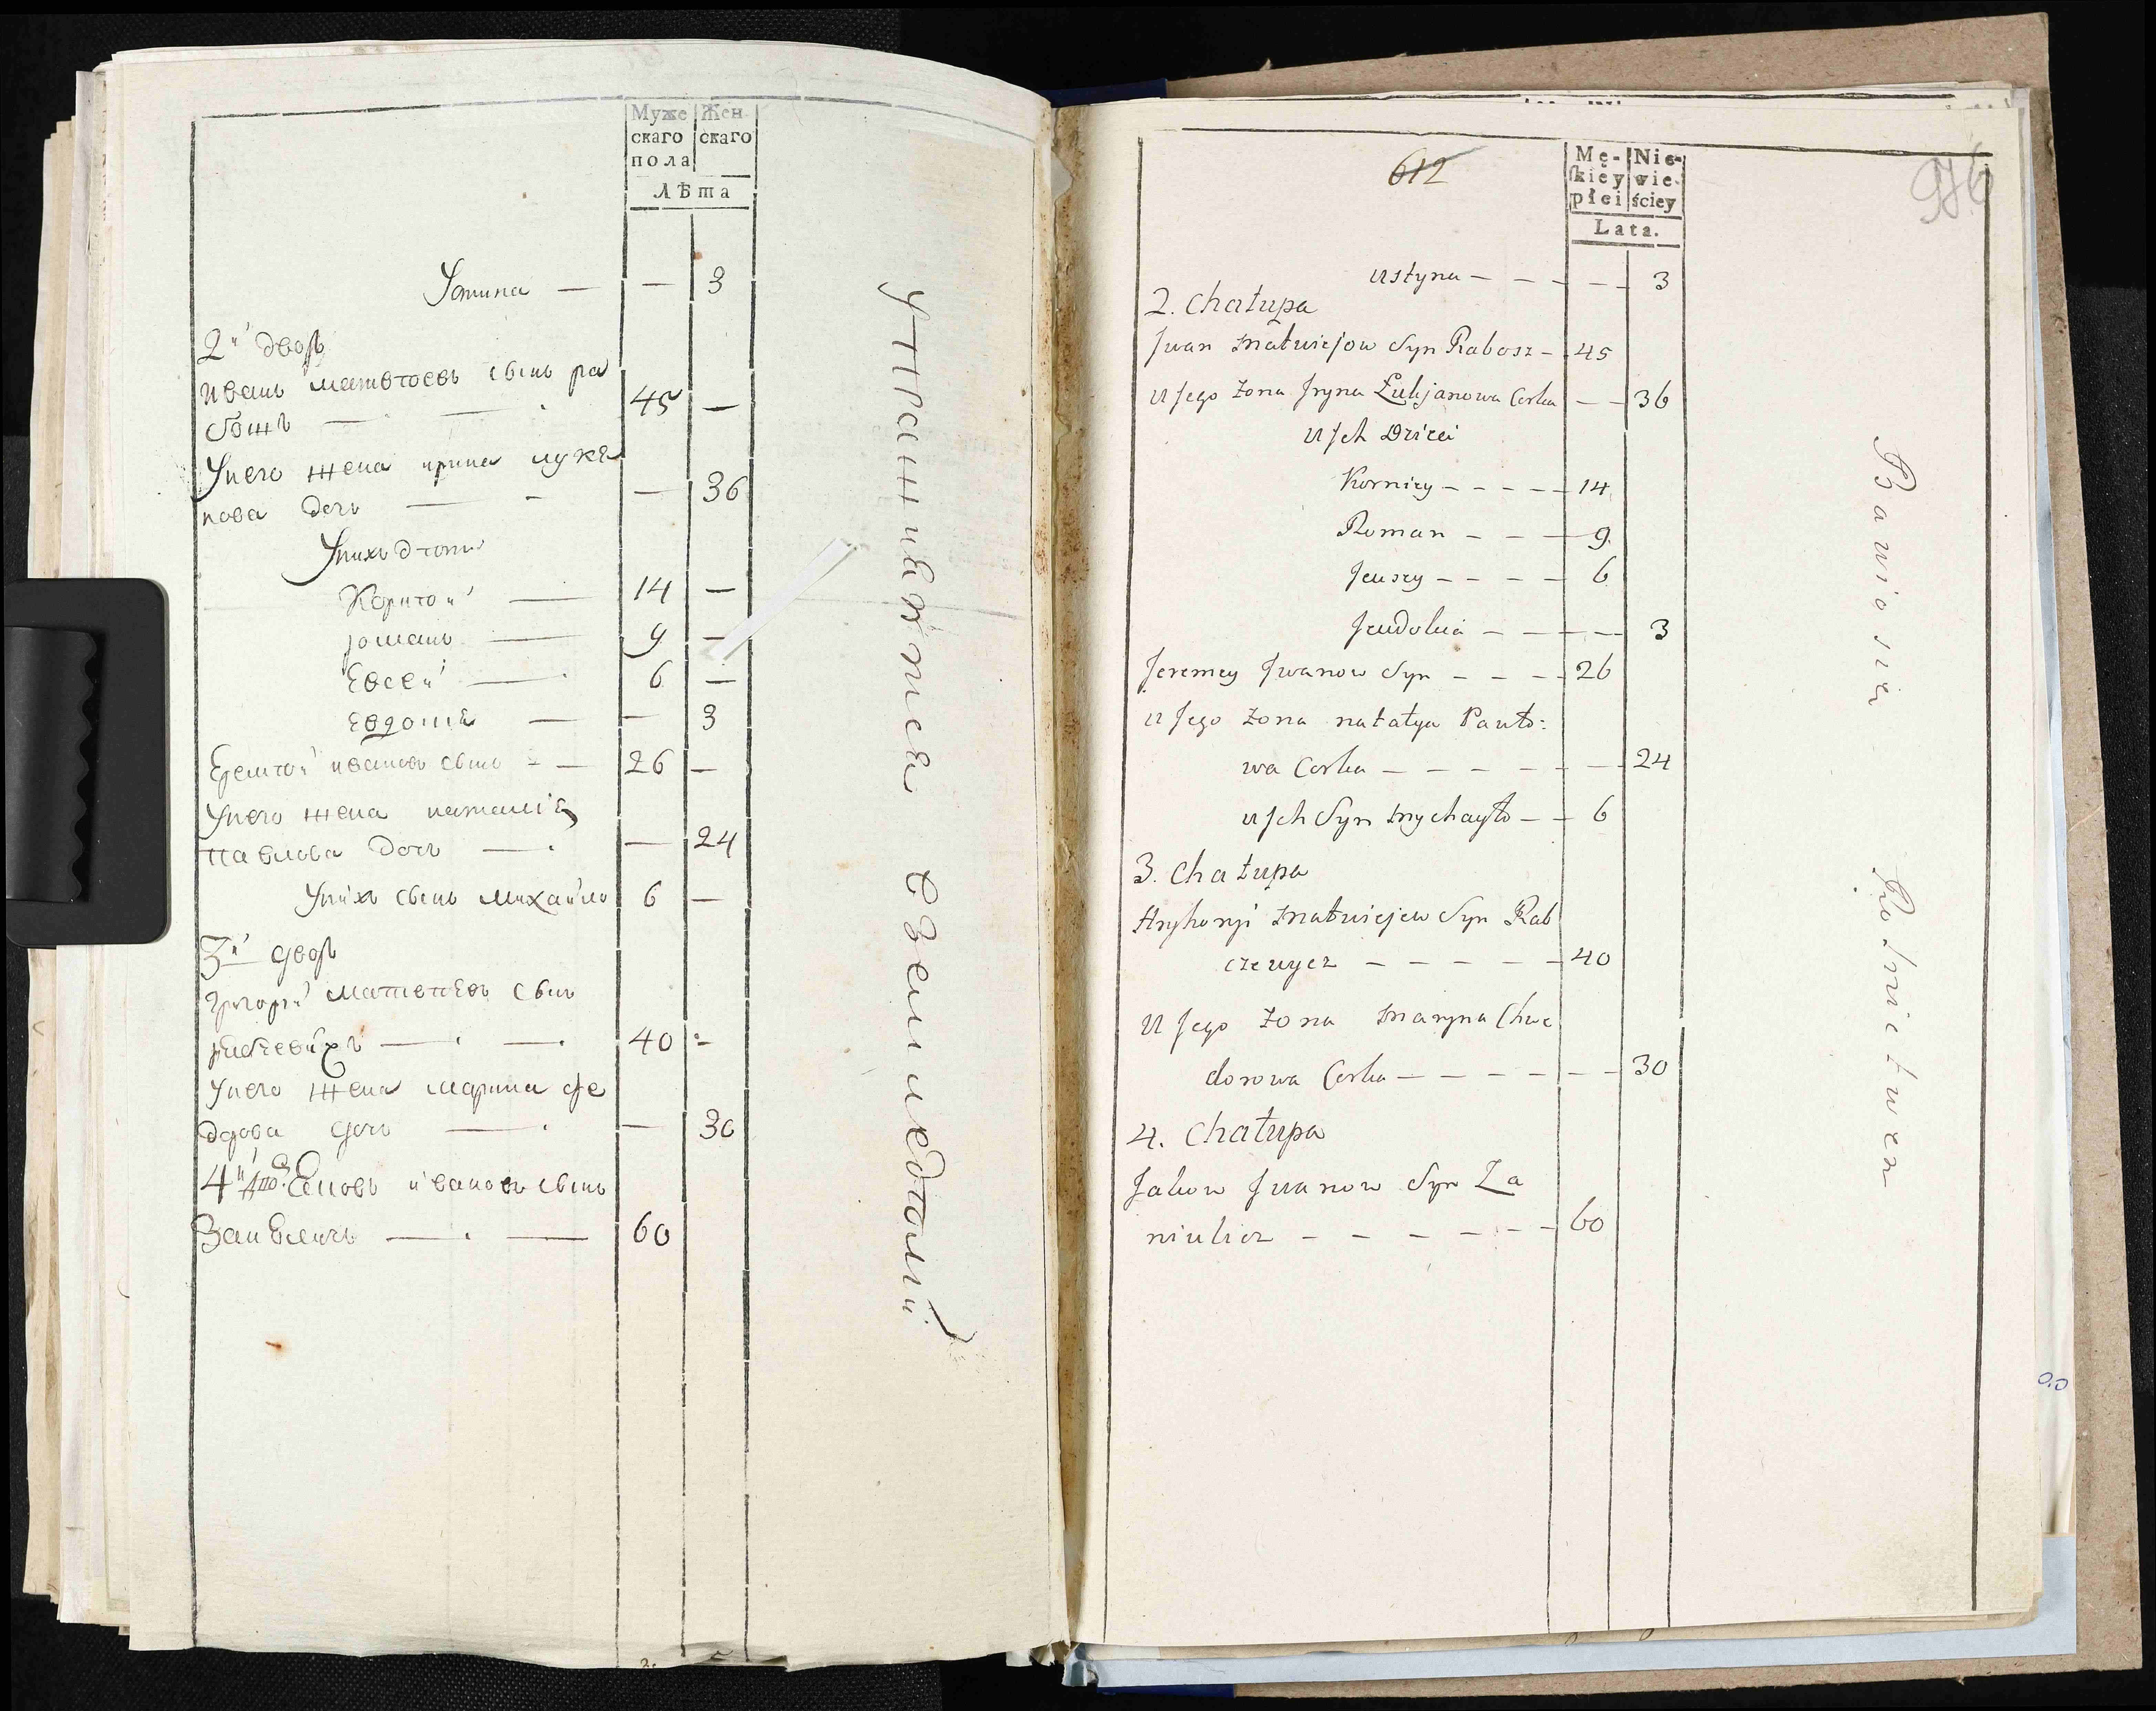 Муже
скаго
пола
Жен
скаго
Лѣта
Устина — — 3
2й дворъ
Иванъ матвѣевъ сынъ ра
бошъ — — 45 —
Унего жена ирина лукя
нова дочь — — — 36
Унихъ дѣти
Корнѣй — 14 —
романъ — 9 —
Евсей — 6 —
Евдокия — — 3
Еремѣй ивановъ сынъ — 26 —
Унего жена наталия
павлова дочь — — 24
Унихъ сынъ михайло 6 —
3й дворъ
григорий матвѣевъ сынъ
— — 40 —
Унего жена марина фе
дорова дочь — — 30
4й ивановъ сынъ
— — 60
Упражняются Земледѣлий
612
976
Mę-
skiey
płci
Nie-
wie-
ściey
Lata.
Ustyna — — — — — 3
2. Chałupa
Jwan Matwiejow Syn Rabosz — 45
U Jego Zona Jryna Łukjanowa Corka — — 36
U Jch Dzieci
Korniey — — — — 14
Roman — — — 9
Jeusey — — — — 6
Jeudokia — — — — 3
Jeremey Jwanow Syn — — — 26
U Jego Zona natałya Pawło:
wa Corka — — — — — — 24
U Jch Syn Mychayło — — 6
3. Chałupa
Hryhoryi Matwiejew Syn Rab
czewycz — — — — — 40
U Jego Zona Maryna Chwe
dorowa Corka — — — — — — 30
4. Chałupa
Jakow Jwanow Syn Za
niukicz — — — — — — 60
Bawią się Rolnictwem